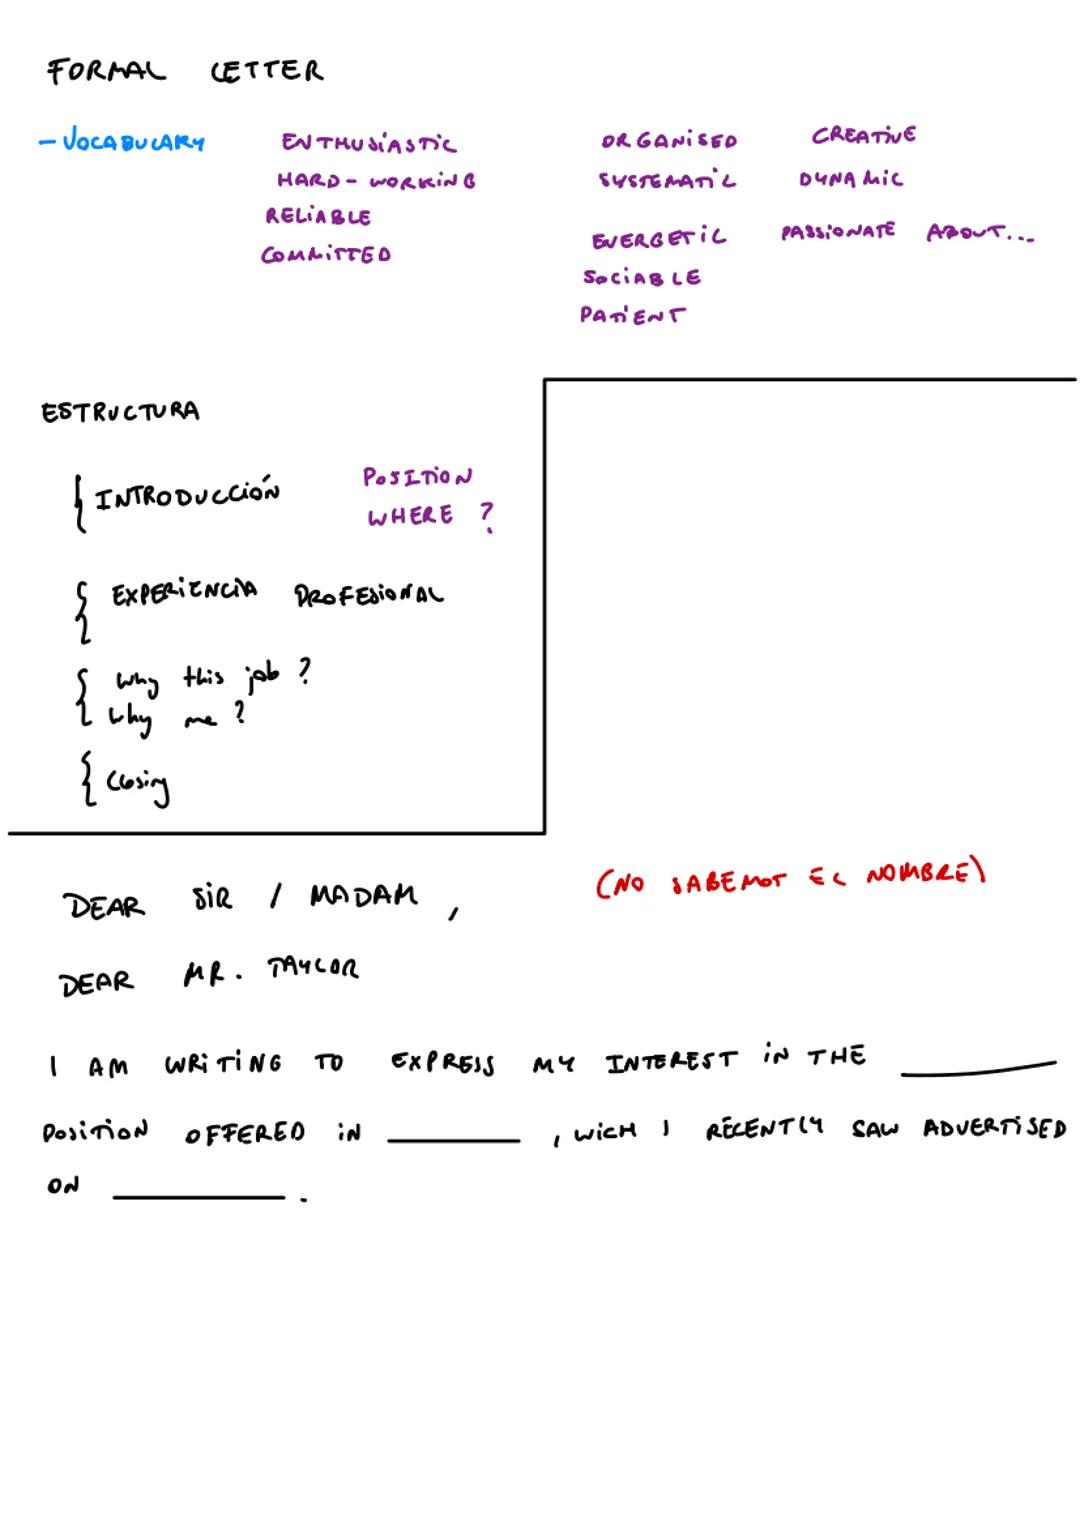 FORMAL LETTER
- VOCABULARY
ENTHUSIASTIC
HARD-WORKING
RELIABLE
COMMITTED
ORGANISED
SYSTEMATIC
ENERGETIC
SOCIABLE
PATIENT
CREATIVE
DYNAMIC
PASSIONATE ABOUT...
ESTRUCTURA
INTRODUCCIÓN
POSITION
WHERE ?
EXPERIENCIA PROFESIONAL
why this job ?
why me ?
Closing
DEAR SIR / MADAM ,
(NO SABEMOS EL NOMBRE)
DEAR MR. TAYLOR
I AM WRITING TO EXPRESS MY INTEREST IN THE ________
POSITION OFFERED IN ________ , WICH I RECENTLY SAW ADVERTISED
ON ________ .